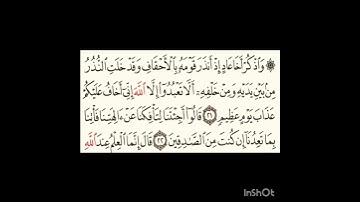 ۞ وَاذْكُرْ أَخَا عَادٍ إِذْ أَنذَرَ قَوْمَهُ بِالْأَحْقَافِ وَقَدْ خَلَتِ النُّذُرُ
مِنْ بَيْنِ يَدَيْهِ وَمِنْ خَلْفِهِ أَلَّا تَعْبُدُوا إِلَّا اللَّهَ إِنِّي أَخَافُ عَلَيْكُمْ
عَذَابَ يَوْمٍ عَظِيمٍ ٢١ قَالُوا أَجِئْتَنَا لِتَأْفِكَنَا عَنْ آلِهَتِنَا فَأْتِنَا
بِمَا تَعِدُنَا إِن كُنتَ مِنَ الصَّادِقِينَ ٢٢ قَالَ إِنَّمَا الْعِلْمُ عِندَ اللَّهِ
InShOt